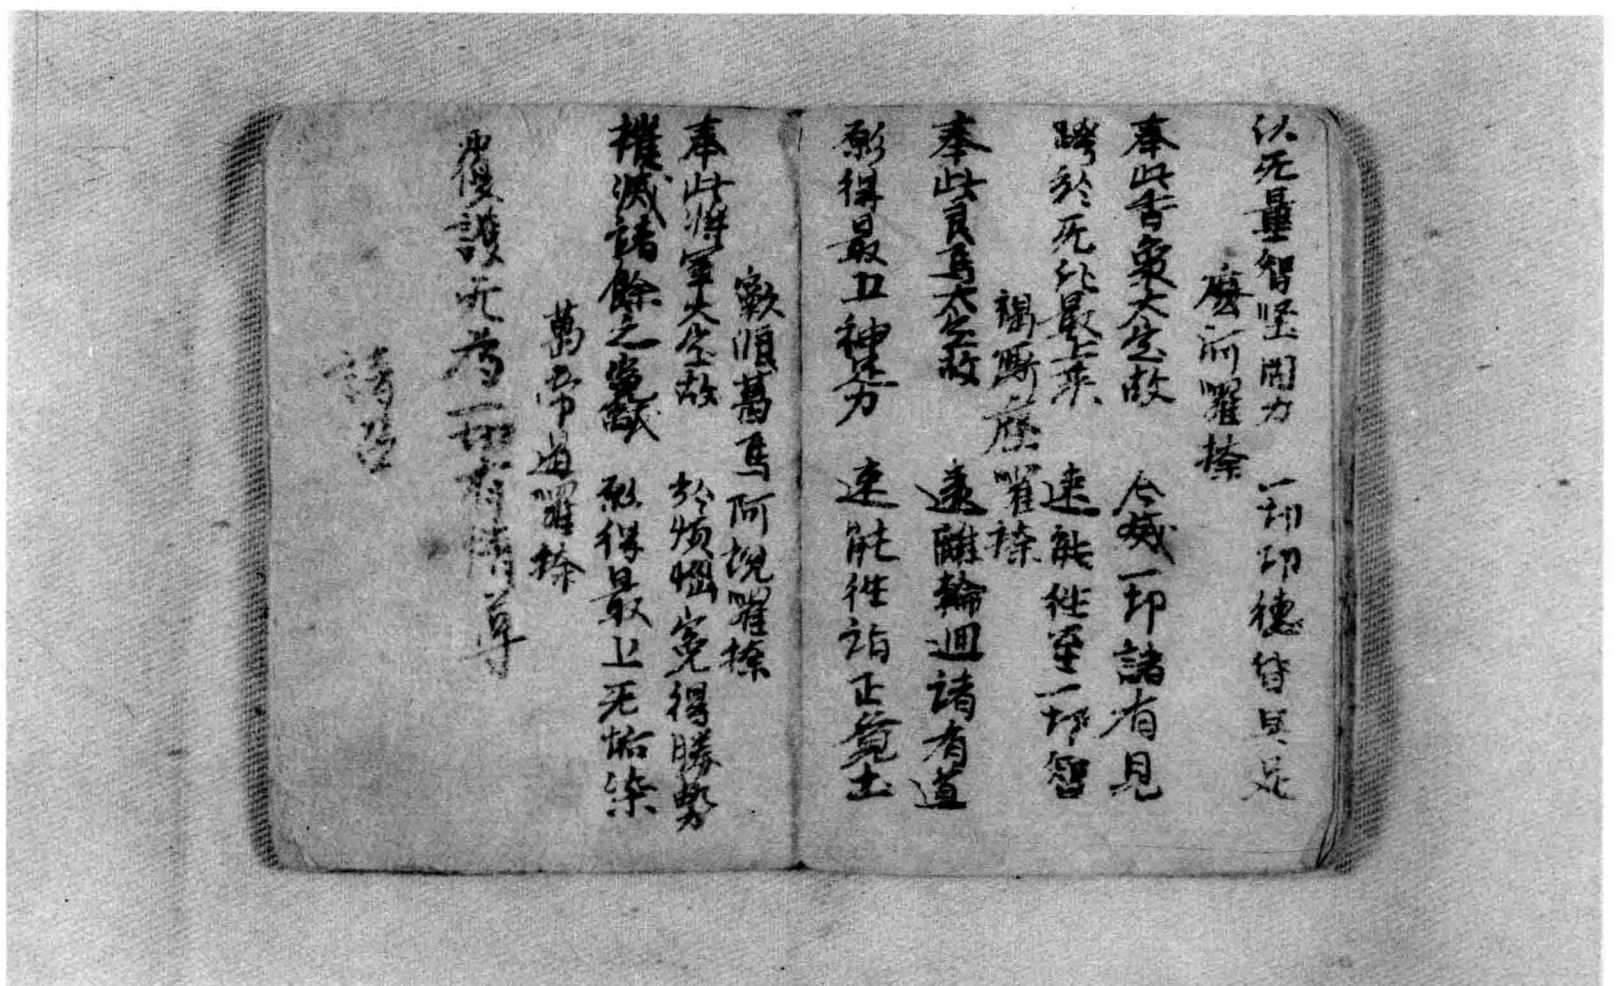 以无量智坚固力 一切功德皆具足
麽阿囉捺
奉此香象大宝故 令滅一切諸有見
跨於无比最上乘 速能往至一切智
褐厮麽囉捺
奉此良馬大宝故 遠離輪迴諸有道
願得最上神足力 速能往詣正覺土
順葛馬阿捺
奉此將軍大宝故 於煩惱寃得勝勢
摧滅諸餘之寃敵 願得最上无垢染
萬帝囉捺
復護无爲一切有情尊